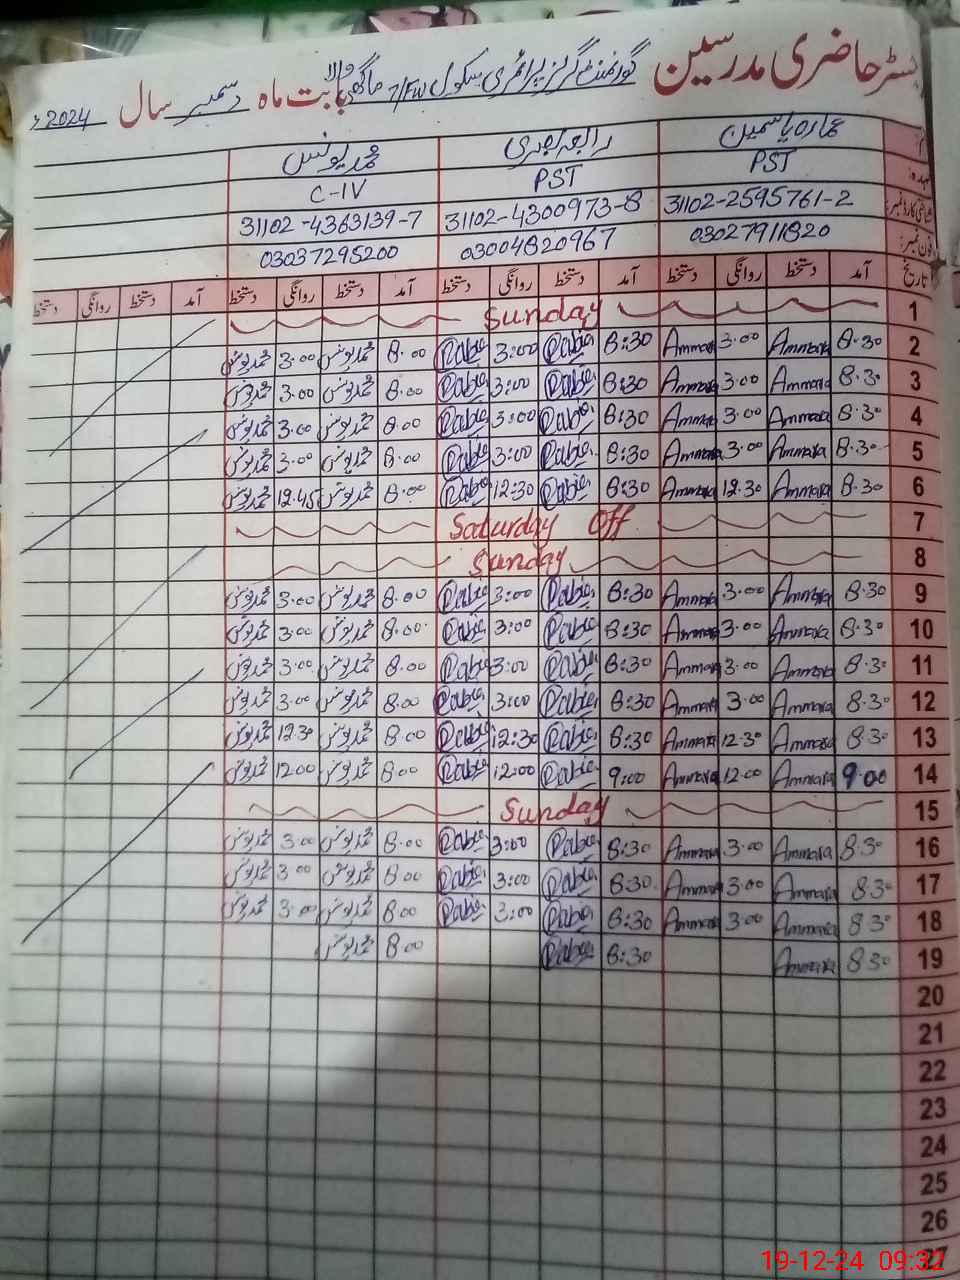 رجسٹر حاضری مدرسین گورنمنٹ گرلز پرائمری سکول 7/FW ماگھی والا بابت ماہ دسمبر سال 2024ء
عمارہ یاسمین رابعہ بصری محمد یونس
عہدہ: PST PST C-IV
شناختی کارڈ نمبر: 31102-2595761-2 31102-4300973-8 31102-4363139-7
فون نمبر: 03027911820 03004820967 03037295200
تاریخ آمد دستخط روانگی دستخط آمد دستخط روانگی دستخط آمد دستخط روانگی دستخط آمد دستخط روانگی دستخط
1 Sunday
2 8.30 Ammara 3.00 Ammara 8:30 Rabia 3:00 Rabia 8.00 محمد یونس 3.00 محمد یونس
3 8.30 Ammara 3.00 Ammara 8:30 Rabia 3:00 Rabia 8.00 محمد یونس 3.00 محمد یونس
4 8.30 Ammara 3.00 Ammara 8:30 Rabia 3:00 Rabia 8.00 محمد یونس 3.00 محمد یونس
5 8.30 Ammara 3.00 Ammara 8:30 Rabia 3:00 Rabia 8.00 محمد یونس 3.00 محمد یونس
6 8.30 Ammara 12.30 Ammara 8:30 Rabia 12:30 Rabia 8.00 محمد یونس 12.45 محمد یونس
7 Saturday Off
8 Sunday
9 8.30 Ammara 3.00 Ammara 8:30 Rabia 3:00 Rabia 8.00 محمد یونس 3.00 محمد یونس
10 8.30 Ammara 3.00 Ammara 8:30 Rabia 3:00 Rabia 8.00 محمد یونس 3.00 محمد یونس
11 8.30 Ammara 3.00 Ammara 8:30 Rabia 3:00 Rabia 8.00 محمد یونس 3.00 محمد یونس
12 8.30 Ammara 3.00 Ammara 8:30 Rabia 3:00 Rabia 8.00 محمد یونس 3.00 محمد یونس
13 8.30 Ammara 12.30 Ammara 8:30 Rabia 12:30 Rabia 8.00 محمد یونس 12.30 محمد یونس
14 9.00 Ammara 12.00 Ammara 9:00 Rabia 12:00 Rabia 8.00 محمد یونس 12.00 محمد یونس
15 Sunday
16 8.30 Ammara 3.00 Ammara 8:30 Rabia 3:00 Rabia 8.00 محمد یونس 3.00 محمد یونس
17 8.30 Ammara 3.00 Ammara 8:30 Rabia 3:00 Rabia 8.00 محمد یونس 3.00 محمد یونس
18 8.30 Ammara 3.00 Ammara 8:30 Rabia 3:00 Rabia 8.00 محمد یونس 3.00 محمد یونس
19 8.30 Ammara 8:30 Rabia 8.00 محمد یونس
20
21
22
23
24
25
26
27
19-12-24 09:32